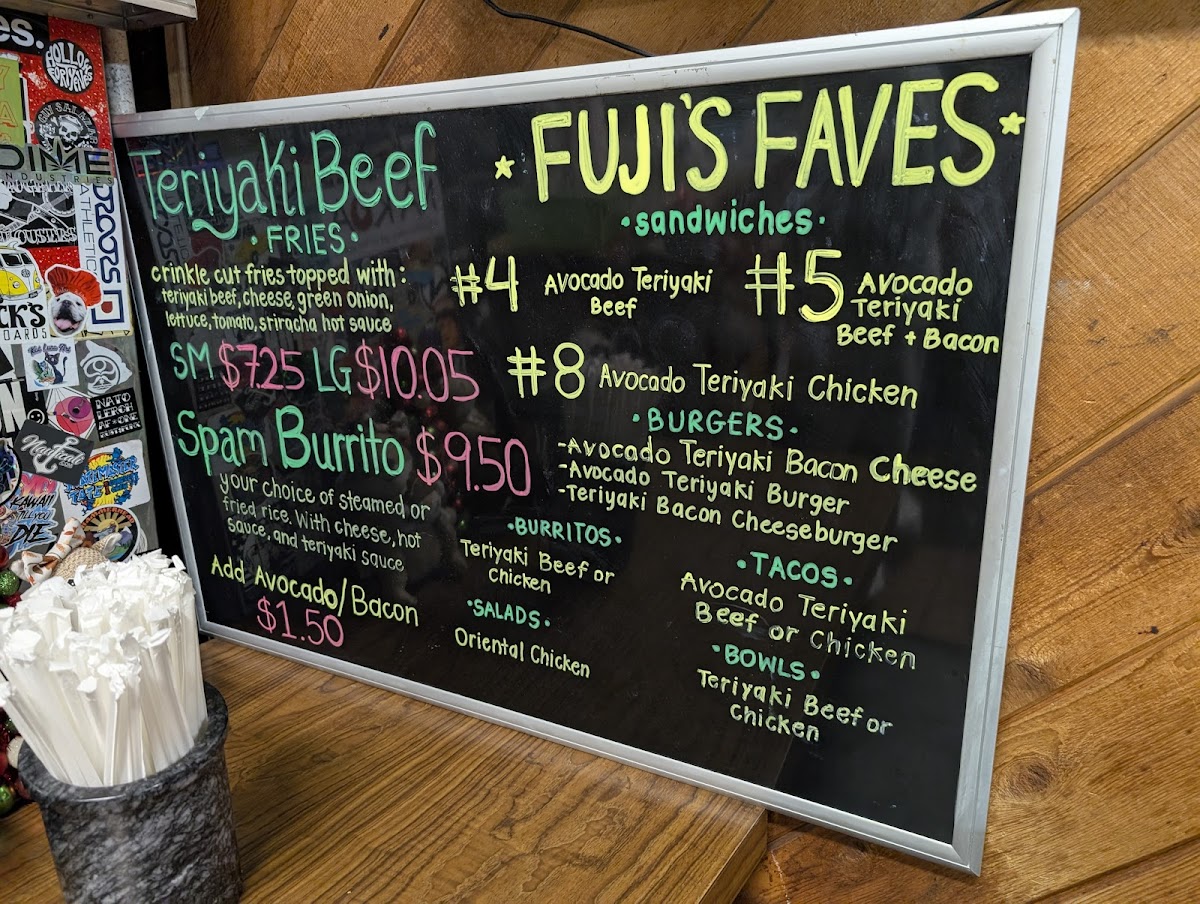 Teriyaki Beef
• FRIES •
crinkle cut fries topped with:
teriyaki beef, cheese, green onion,
lettuce, tomato, sriracha hot sauce
SM $7.25 LG $10.05
Spam Burrito $9.50
your choice of steamed or
fried rice. With cheese, hot
sauce, and teriyaki sauce
Add Avocado/Bacon
$1.50
FUJI'S FAVES
• sandwiches •
#4 Avocado Teriyaki
Beef
#5 Avocado
Teriyaki
Beef + Bacon
#8 Avocado Teriyaki Chicken
• BURGERS •
-Avocado Teriyaki Bacon Cheese
-Avocado Teriyaki Burger
-Teriyaki Bacon Cheeseburger
• BURRITOS •
Teriyaki Beef or
Chicken
• SALADS •
Oriental Chicken
• TACOS •
Avocado Teriyaki
Beef or Chicken
• BOWLS •
Teriyaki Beef or
Chicken
es.
DIME
INDUSTRIES
ATHLETIC
CK'S
NATO
LERCH
Nautical
KAWAII
TILL YOU
DIE